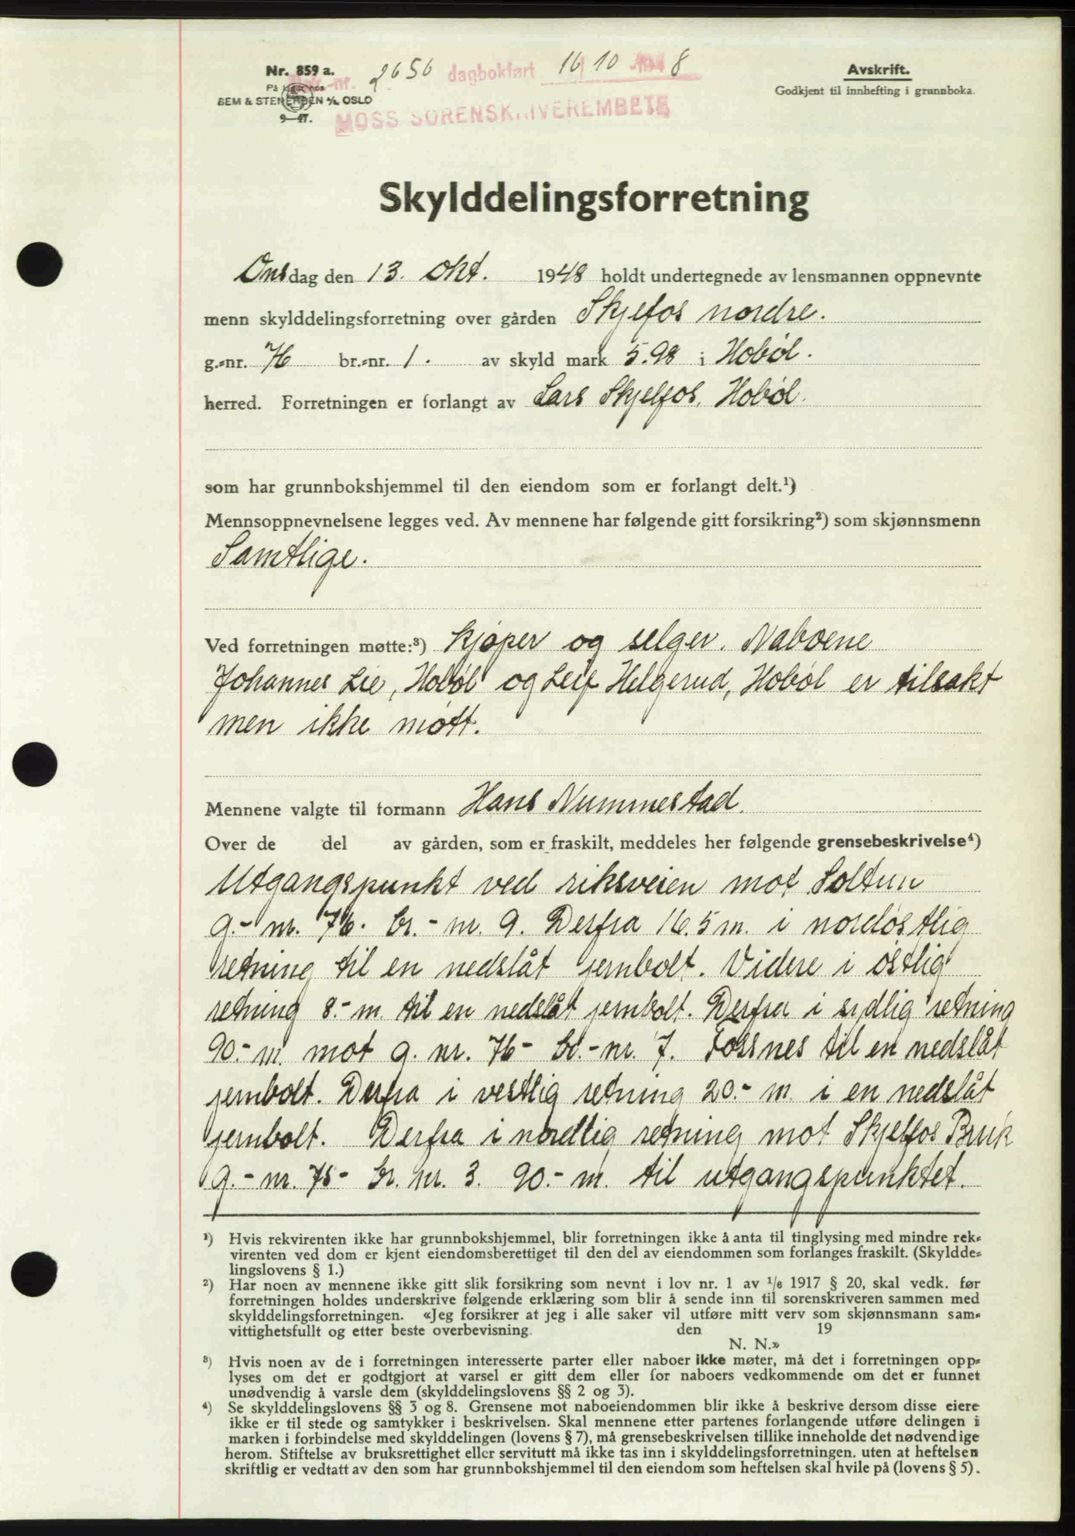 Nr. 859 a.
BEM & STENERSEN A/S, OSLO
9—47.
2656 dagbokført 16/10 1948
MOSS SORENSKRIVEREMBETE
Avskrift.
Godkjent til innhefting i grunnboka.
Skylddelingsforretning
Onsdag den 13. okt. 1948 holdt undertegnede av lensmannen oppnevnte
menn skylddelingsforretning over gården Skjelfos nordre.
g.-nr. 76 br.-nr. 1. av skyld mark 5.98 i Hobøl.
herred. Forretningen er forlangt av Lars Skjelfos, Hobøl.
som har grunnbokshjemmel til den eiendom som er forlangt delt.¹)
Mennsoppnevnelsene legges ved. Av mennene har følgende gitt forsikring²) som skjønnsmenn
Samtlige.
Ved forretningen møtte:³) Kjøper og selger. Naboene
Johannes Lie, Hobøl og Leif Helgerud, Hobøl er tilsakt
men ikke møtt.
Mennene valgte til formann Hans Nummestad.
Over de del av gården, som er fraskilt, meddeles her følgende grensebeskrivelse⁴)
Utgangspunkt ved riksveien mot Soltun
g.- nr. 76. br.- nr. 9. Derfra 16.5 m. i nordøstlig
retning til en nedslåt jernbolt. Videre i østlig
retning 8.- m. til en nedslåt jernbolt. Derfra i sydlig retning
90.- m. mot g. nr. 76- br.- nr. 7. Fossnes til en nedslåt
jernbolt. Derfra i vestlig retning 20.- m. i en nedslåt
jernbolt. Derfra i nordlig retning mot Skjelfos Bruk
g.- nr. 75- br. nr. 3. 90.- m. til utgangspunktet.
¹) Hvis rekvirenten ikke har grunnbokshjemmel, blir forretningen ikke å anta til tinglysing med mindre rek-
virenten ved dom er kjent eiendomsberettiget til den del av eiendommen som forlanges fraskilt. (Skyldde-
lingslovens § 1.)
²) Har noen av mennene ikke gitt slik forsikring som nevnt i lov nr. 1 av 1/6 1917 § 20, skal vedk. før
forretningen holdes underskrive følgende erklæring som blir å sende inn til sorenskriveren sammen med
skylddelingsforretningen. «Jeg forsikrer at jeg i alle saker vil utføre mitt verv som skjønnsmann sam-
vittighetsfullt og etter beste overbevisning. den 19
N. N.»
³) Hvis noen av de i forretningen interesserte parter eller naboer ikke møter, må det i forretningen opp-
lyses om det er godtgjort at varsel er gitt dem eller for naboers vedkommende om det er funnet
unødvendig å varsle dem (skylddelingslovens §§ 2 og 3).
⁴) Se skylddelingslovens §§ 3 og 8. Grensene mot naboeiendommen blir ikke å beskrive dersom disse eiere
ikke er til stede og samtykker i beskrivelsen. Skal mennene etter partenes forlangende utføre delingen i
marken i forbindelse med skylddelingen (lovens § 7), må grensebeskrivelsen tillike inneholde det nødvendige
herom. Stiftelse av bruksrettighet eller servitutt må ikke tas inn i skylddelingsforretningen, uten at heftelsen
skriftlig er vedtatt av den som har grunnbokshjemmel til den eiendom som heftelsen skal hvile på (lovens § 5).